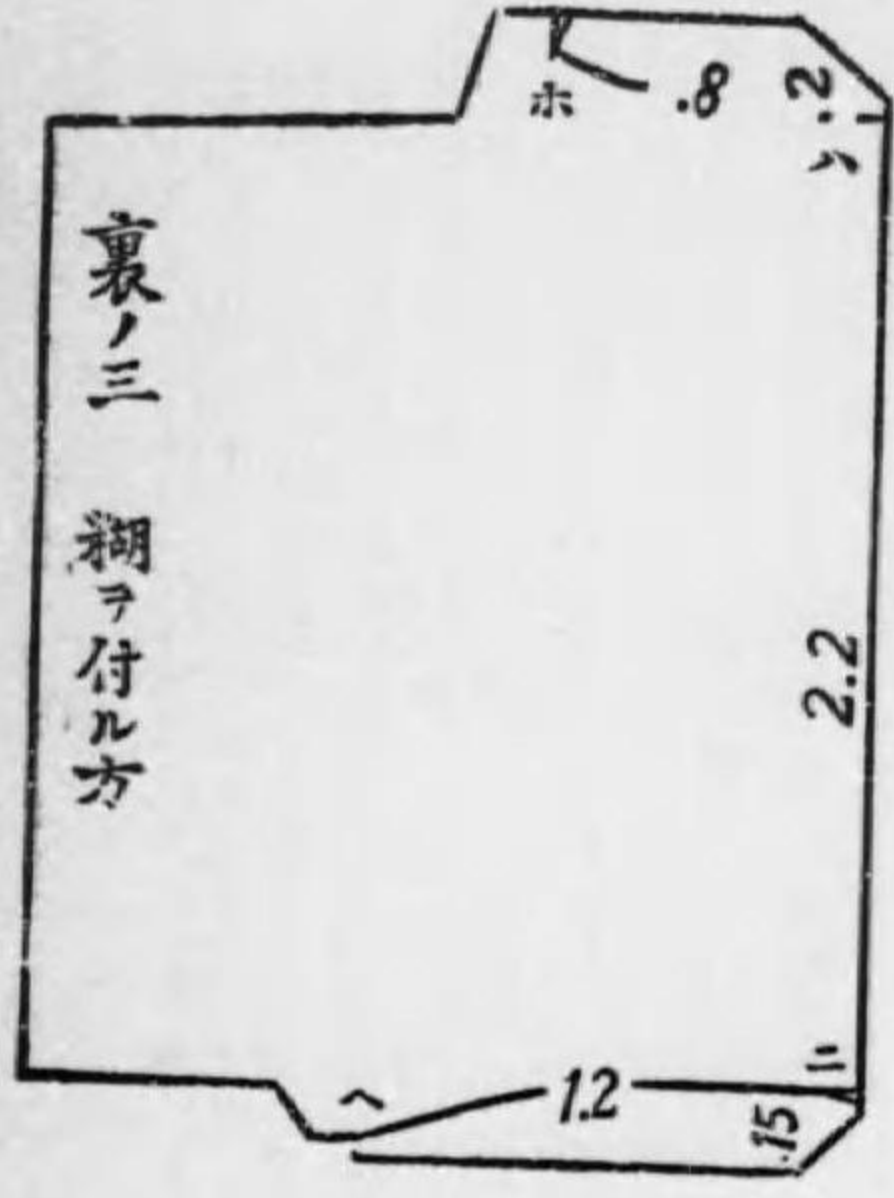 ホ
.8
.2
ハ
裏ノ三 糊ヲ付ル方
2.2
ニ
ヘ
1.2
.15